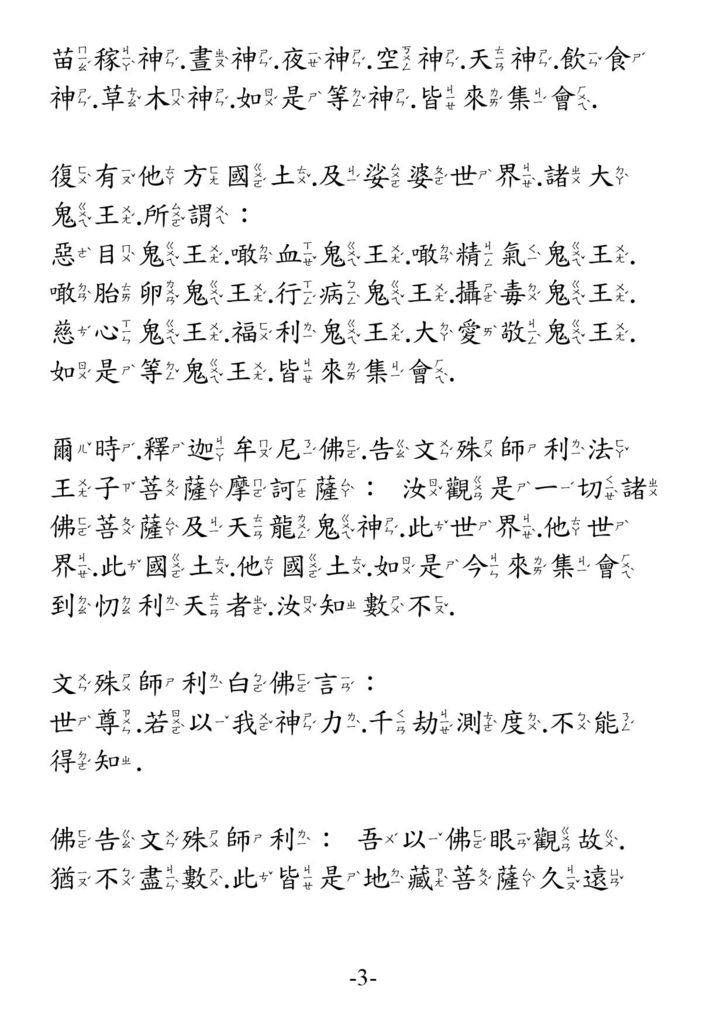 苗稼神.晝神.夜神.空神.天神.飲食
神.草木神.如是等神.皆來集會.
復有他方國土.及娑婆世界.諸大
鬼王.所謂：
惡目鬼王.噉血鬼王.噉精氣鬼王.
噉胎卵鬼王.行病鬼王.攝毒鬼王.
慈心鬼王.福利鬼王.大愛敬鬼王.
如是等鬼王.皆來集會.
爾時.釋迦牟尼佛.告文殊師利法
王子菩薩摩訶薩： 汝觀是一切諸
佛菩薩及天龍鬼神.此世界.他世
界.此國土.他國土.如是今來集會
到忉利天者.汝知數不.
文殊師利白佛言：
世尊.若以我神力.千劫測度.不能
得知.
佛告文殊師利： 吾以佛眼觀故.
猶不盡數.此皆是地藏菩薩久遠
-3-